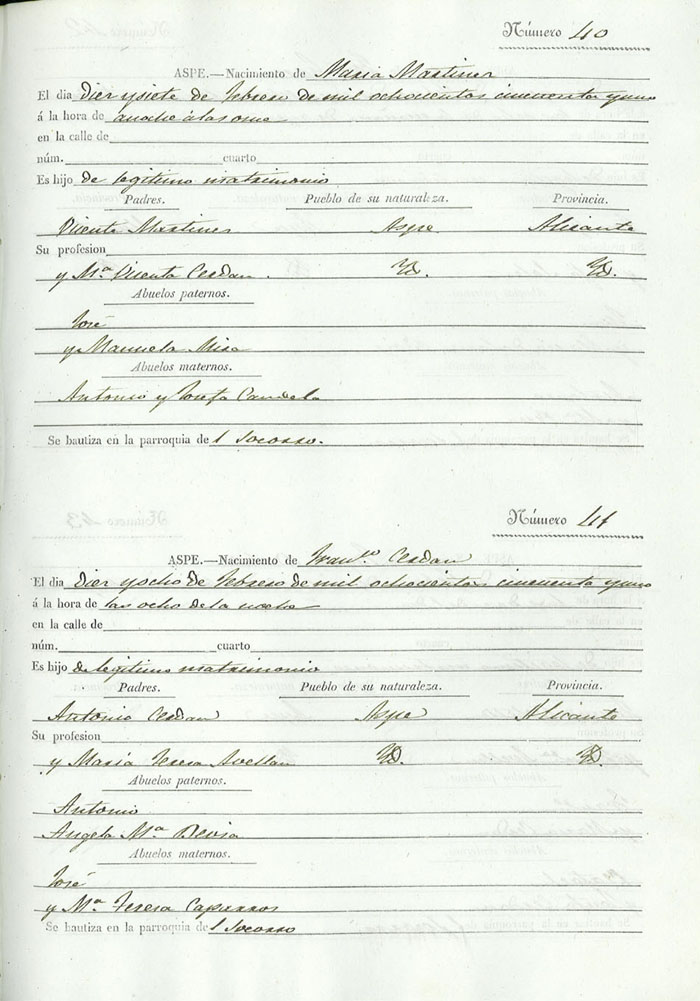 Número 40
ASPE.—Nacimiento de Maria Martinez
El dia diez y siete de febrero de mil ochocientos cincuenta y uno
á la hora de anoche a las once
en la calle de
núm. cuarto
Es hijo de legitimo matrimonio
Padres. Pueblo de su naturaleza. Provincia.
Vicente Martinez Aspe Alicante
Su profesion
y Mª Vicenta Cerdan. Yd. Yd.
Abuelos paternos.
José
y Manuela Mira
Abuelos maternos.
Antonio y Josefa Candela
Se bautiza en la parroquia de l Socorro.
Número 41
ASPE.—Nacimiento de Franco. Cerdan
El dia diez y ocho de febrero de mil ochocientos cincuenta y uno
á la hora de las ocho de la noche
en la calle de
núm. cuarto
Es hijo de legitimo matrimonio
Padres. Pueblo de su naturaleza. Provincia.
Antonio Cerdan Aspe Alicante
Su profesion
y Maria Teresa Avellan Yd. Yd.
Abuelos paternos.
Antonio
Angela Mª
Abuelos maternos.
José
y Mª Teresa Caparros
Se bautiza en la parroquia de l Socorro